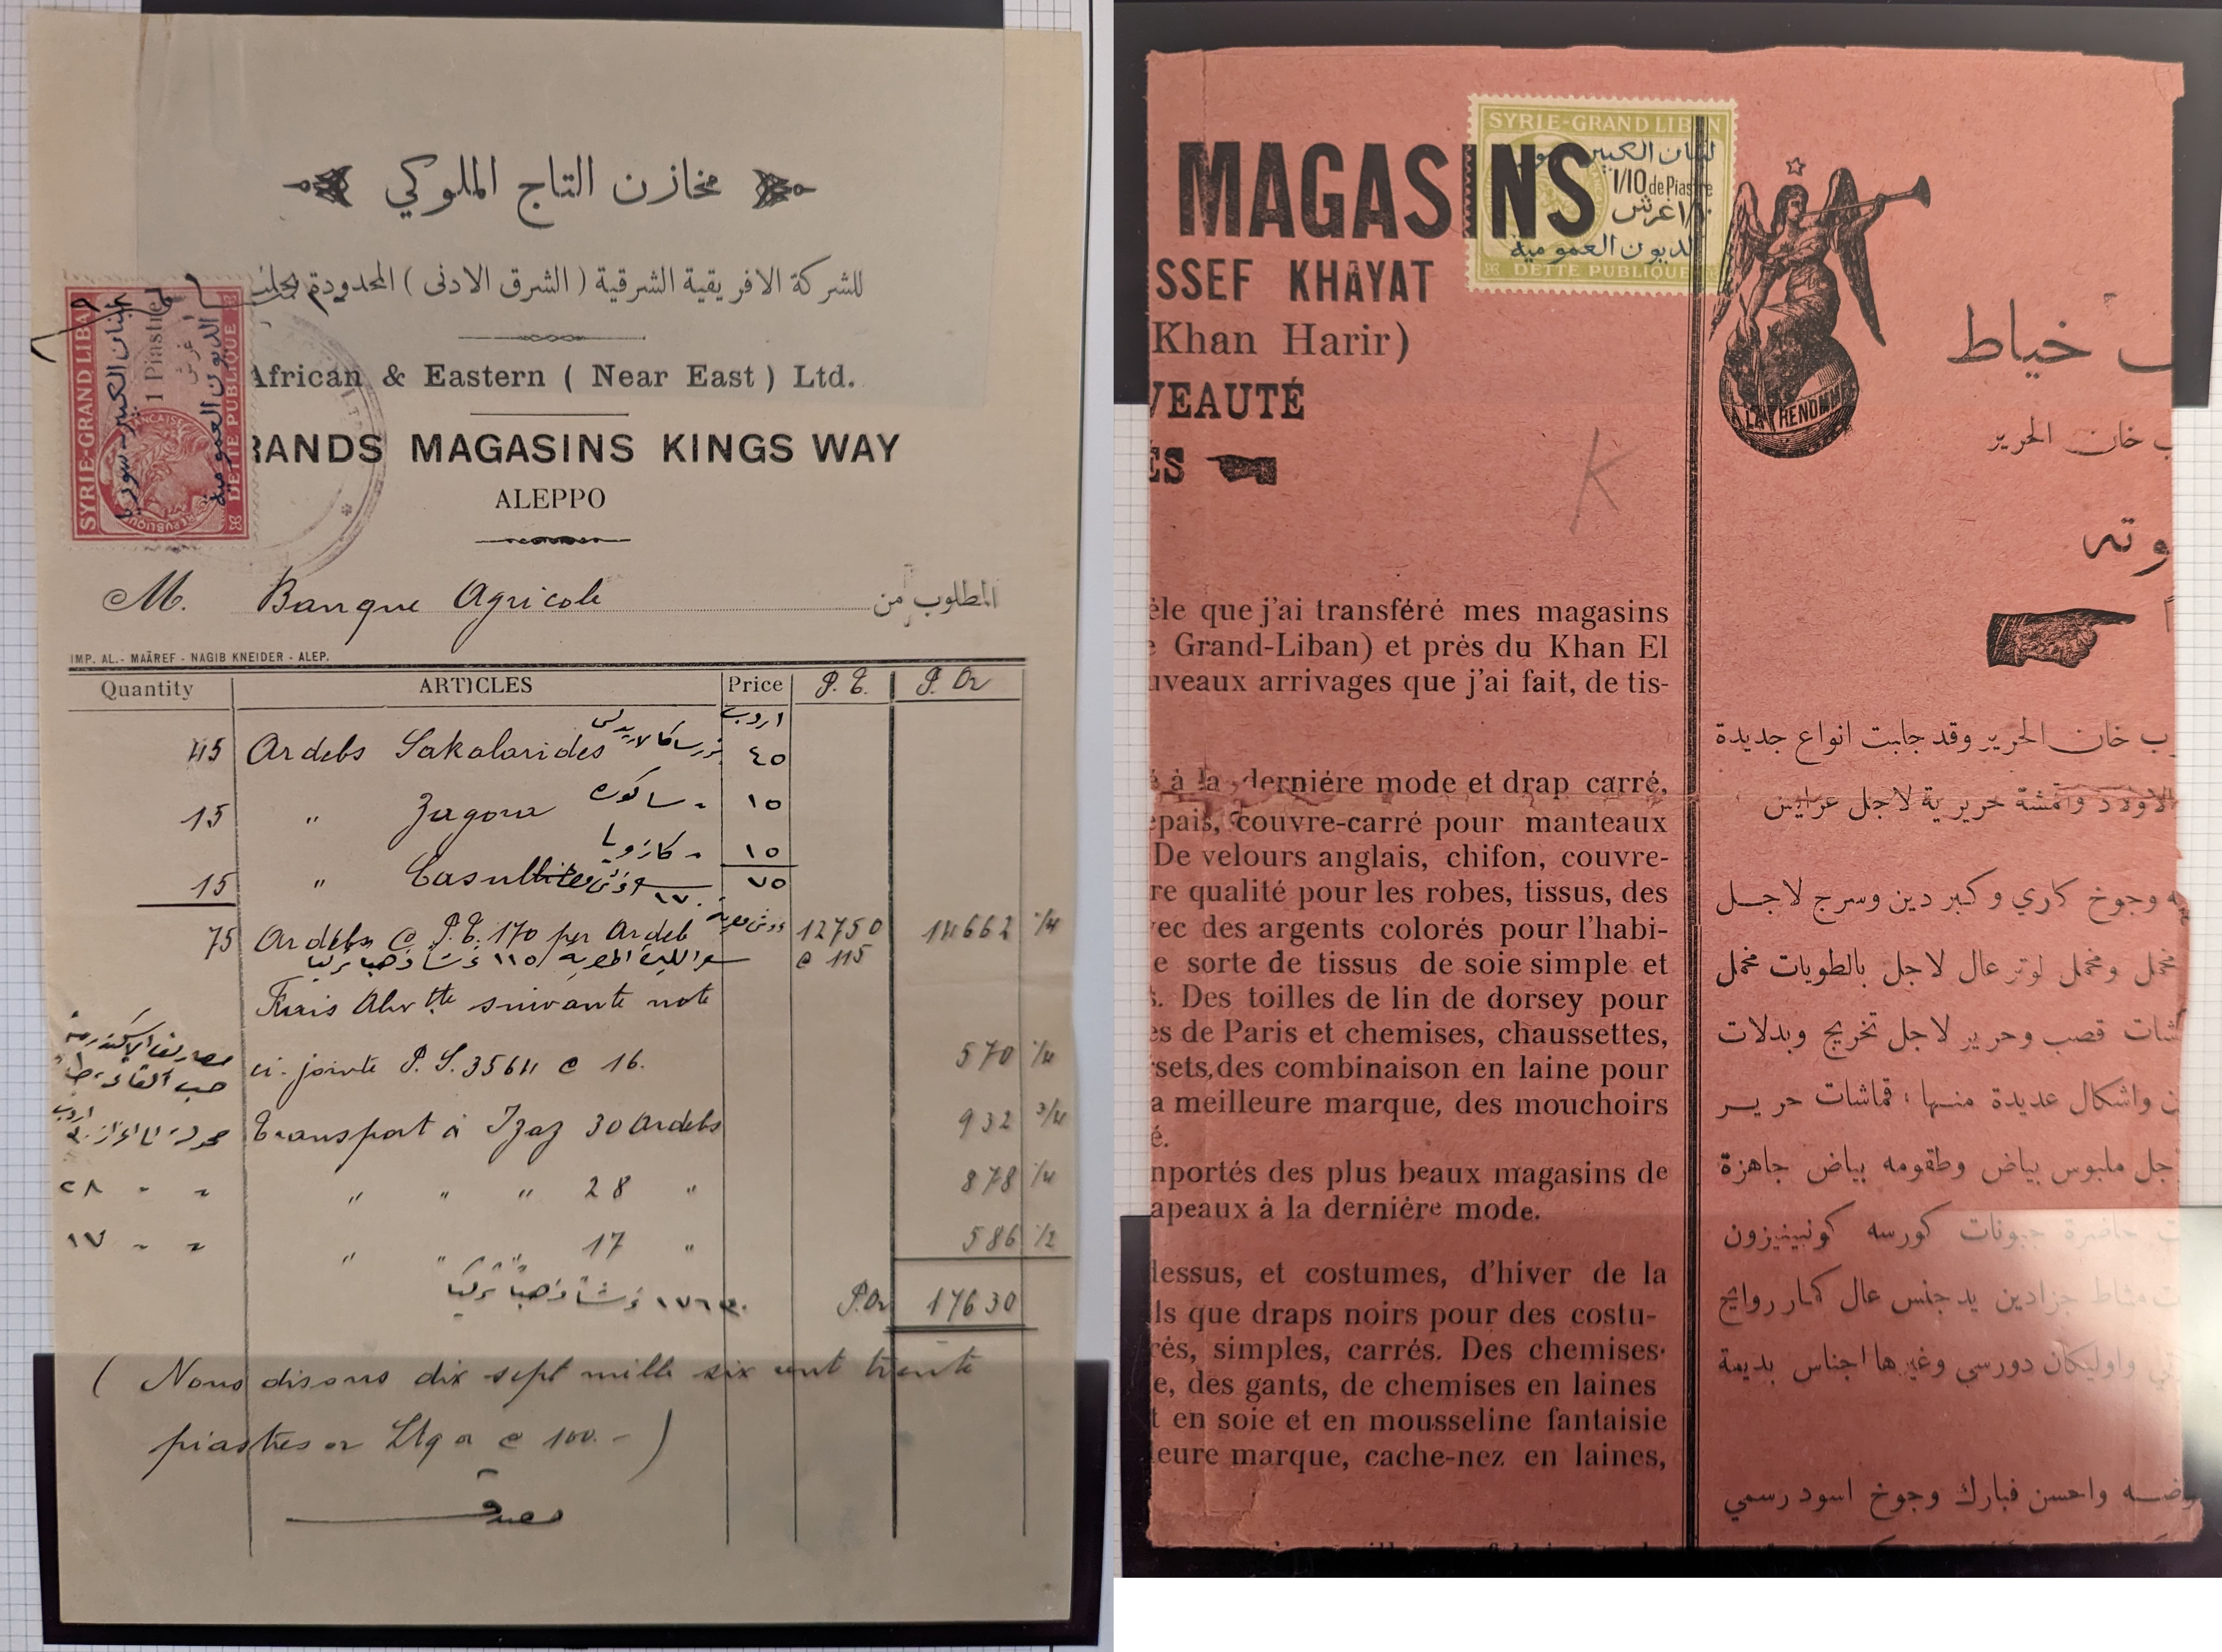 مخازن التاج الملوكي
للشركة الافريقية الشرقية ( الشرق الادنى ) المحدودة بحلب
African & Eastern ( Near East ) Ltd.
RANDS MAGASINS KINGS WAY
ALEPPO
SYRIE-GRAND LIBAN
لبنان الكبير - سوريا
1 Piastre
غرش
الديون العمومية
DETTE PUBLIQUE
M. Banque Agricole المطلوب من
IMP. AL.- MAÄREF - NAGIB KNEIDER - ALEP.
Quantity ARTICLES Price P. E. P. Or
اردب
45 Ardebs Sakalarides ٤٥
15 " Zagora ١٥
١٥
15 " Casulli ٧٥
75 Ardebs @ P.E. 170 per Ardeb 12750 14662 1/4
@ 115
Frais Alextte suivante note
ci-jointe P. S. 3564 @ 16. 570 1/4
Transport à Izaz 30 Ardebs 932 3/4
٢٨ " " " " " 28 " 878 1/4
١٧ " " " " " 17 " 586 1/2
١٧٦٣٠ غرشاً ذهباً تركيا P.Or 17630
( Nous disons dix sept mille six cent trente
piastres or Ltq or @ 100.- )
MAGASINS
SSEF KHAYAT
Khan Harir)
VEAUTÉ
ÉS
SYRIE-GRAND LIBAN
لبنان الكبير
1/10 de Piastre
١/١٠ غرش
الديون العمومية
DETTE PUBLIQUE
A LA RENOMMÉE
K
èle que j'ai transféré mes magasins
e Grand-Liban) et près du Khan El
uveaux arrivages que j'ai fait, de tis-
é à la derniére mode et drap carré,
epais, couvre-carré pour manteaux
De velours anglais, chifon, couvre-
re qualité pour les robes, tissus, des
vec des argents colorés pour l'habi-
e sorte de tissus de soie simple et
s. Des toilles de lin de dorsey pour
es de Paris et chemises, chaussettes,
rsets, des combinaison en laine pour
a meilleure marque, des mouchoirs
é.
nportés des plus beaux magasins de
apeaux à la derniére mode.
dessus, et costumes, d'hiver de la
ls que draps noirs pour des costu-
rés, simples, carrés. Des chemises
e, des gants, de chemises en laines
t en soie et en mousseline fantaisie
leure marque, cache-nez en laines,
ف خياط
ب خان الحرير
وته
ب خان الحرير وقد جلبت انواع جديدة
الاولاد واقمشة حريرية لاجل عرايس
وجوخ كاري وكبر دين وسرج لاجل
مخمل ومخمل لوتر عال لاجل بالطويات مخمل
شات قصب وحرير لاجل تخريج وبدلات
ن واشكال عديدة منها ، قماشات حرير
جل ملبوس بياض وطقومه بياض جاهزة
ت حاضرة جبونات كورسه كونبينيزون
ت مشاط جزادين يد جنس عال كمار روايح
تي واوليكان دورسي وغيرها اجناس بديعة
وضه واحسن فبارك وجوخ اسود رسمي